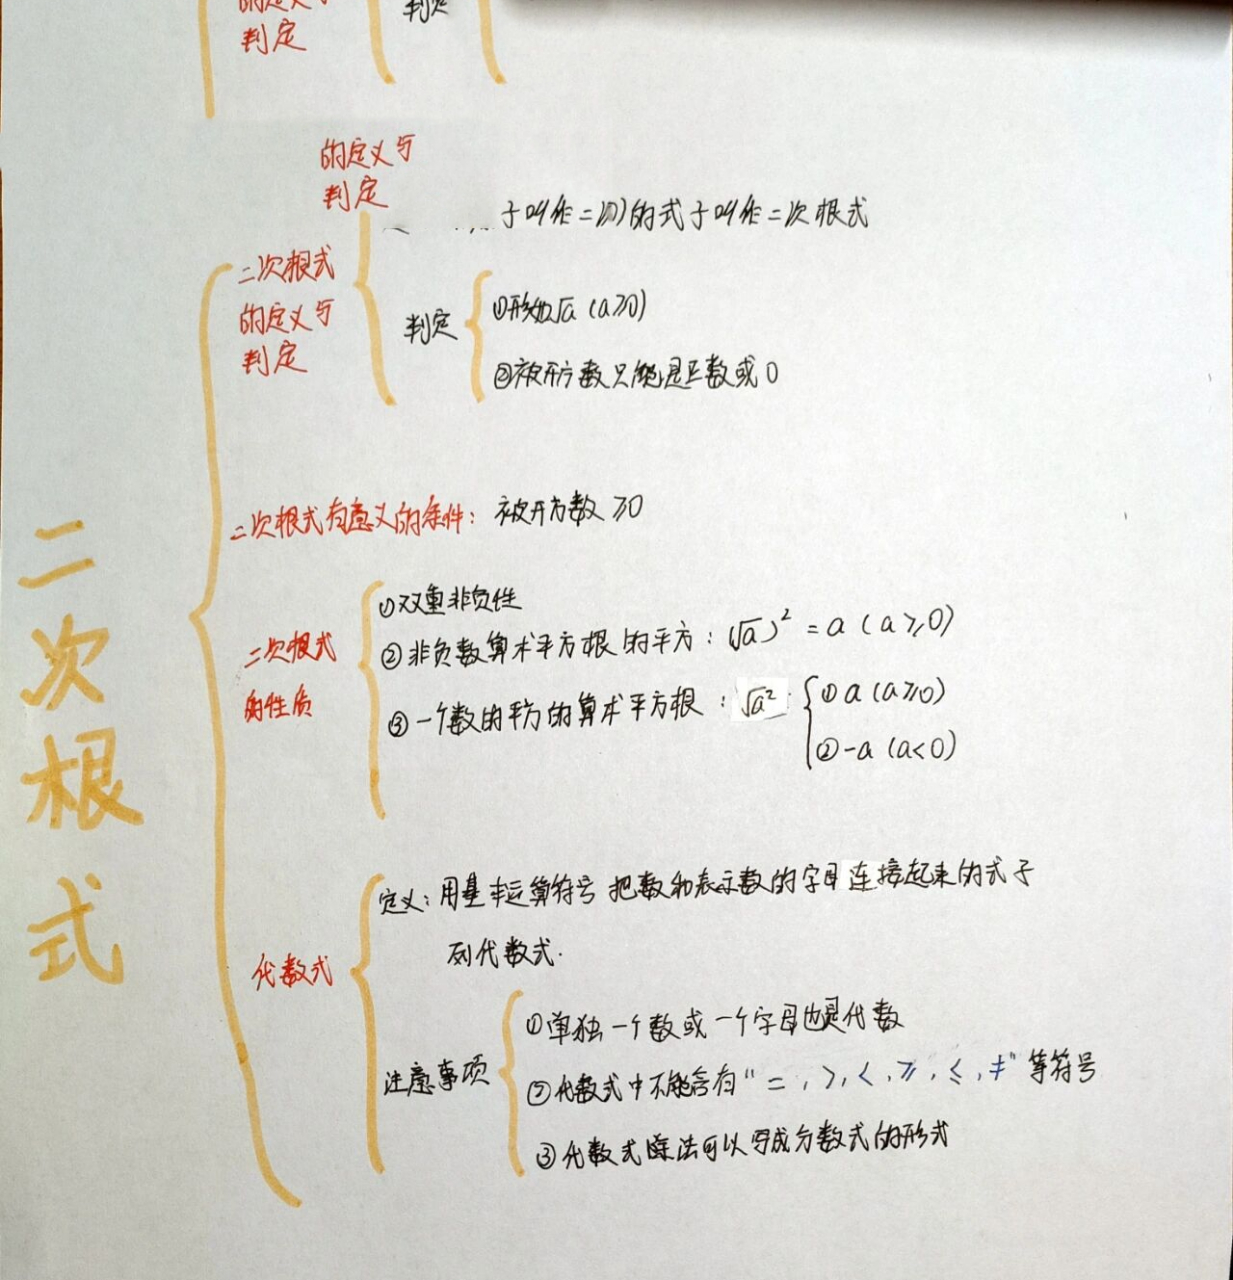 判定
判定
的定义与
判定
子叫作二次)的式子叫作二次根式
二次根式
的定义与
判定
判定
①形如√a（a≥0）
②被开方数只能是正数或0
二次根式有意义的条件：被开方数≥0
二次根式
的性质
①双重非负性
②非负数算术平方根的平方：(√a)²=a（a≥0）
③一个数的平方的算术平方根：√a²
①a（a≥0）
②-a（a<0）
代数式
定义：用基本运算符号把数和表示数的字母连接起来的式子
列代数式.
注意事项
①单独一个数或一个字母也是代数
②代数式中不能含有"=,>,<,≥,≤,≠"等符号
③代数式除法可以写成分数式的形式
二次根式